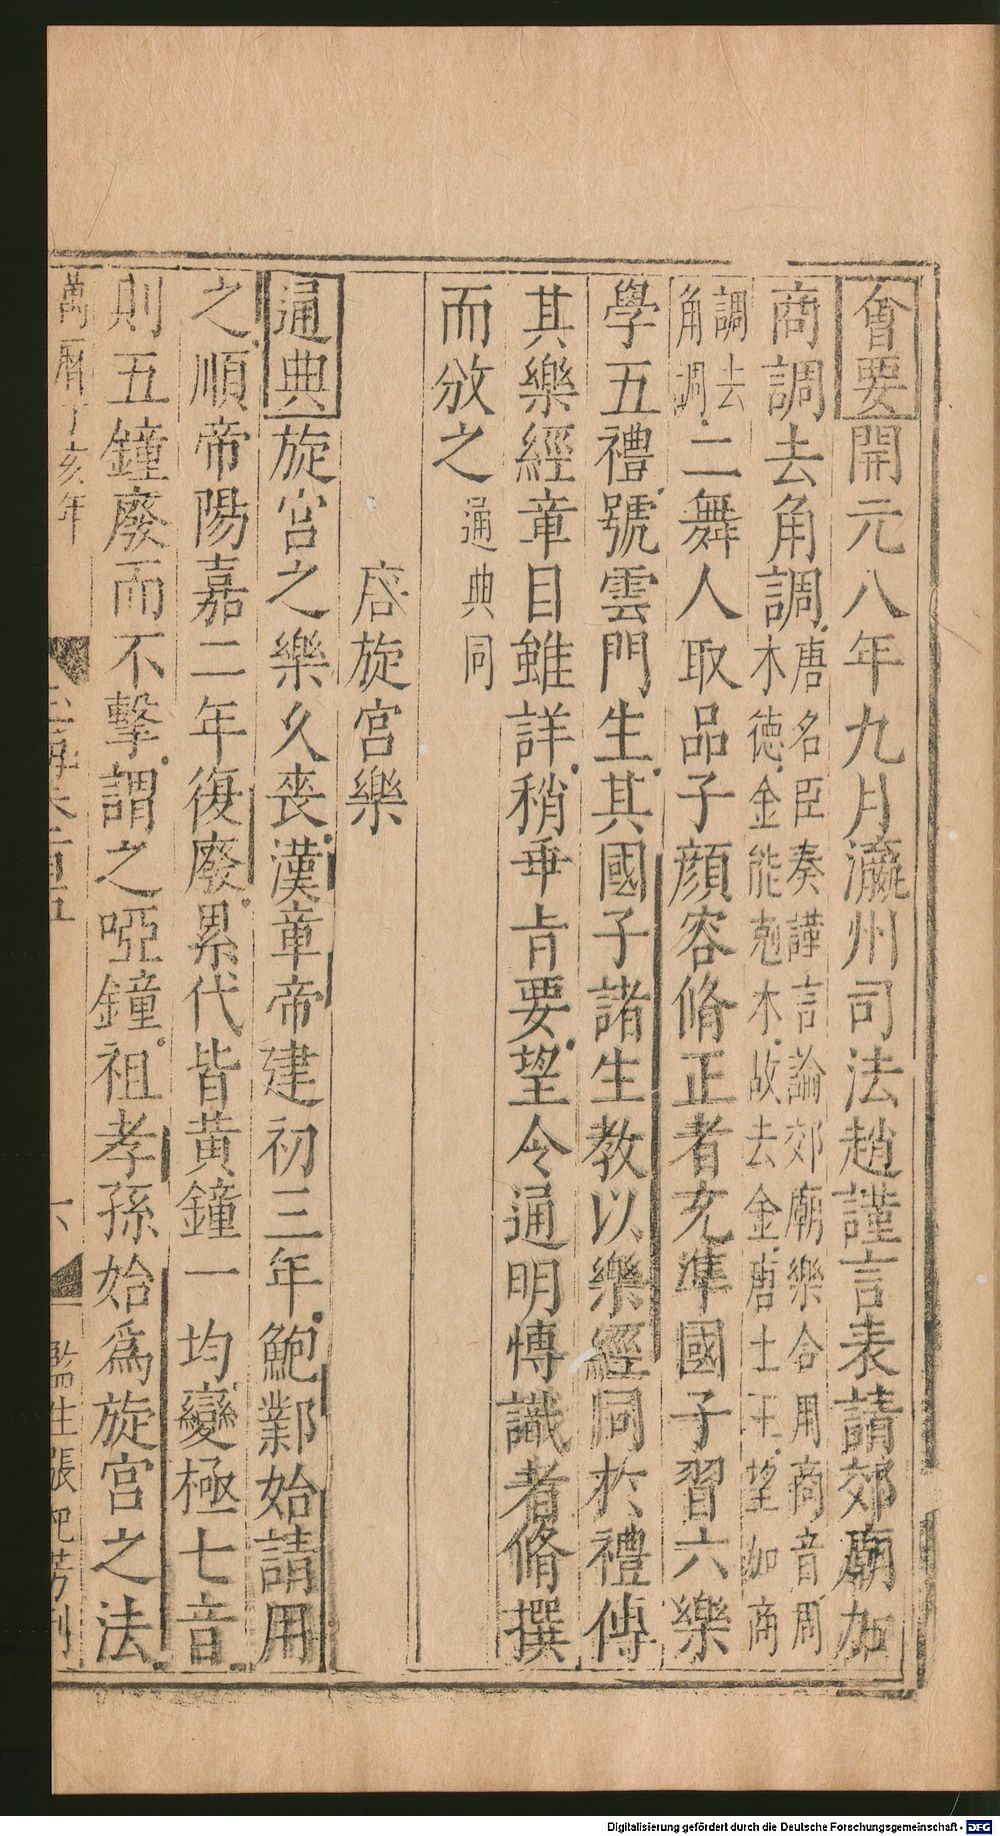 會要開元八年九月瀛州司法趙謹言表請郊廟加
商調去角調唐名臣奏謹言論郊廟樂合用商音周
木德金能剋木故去金唐土王望加商
調去
角調二舞人取品子顔容脩正者充準國子習六樂
學五禮號雲門生其國子諸生教以樂經同於禮傳
其樂經章目雖詳稍乖旨要望令通明愽識者脩撰
而攽之通典同
唐旋宮樂
通典旋宮之樂久喪漢章帝建初三年鮑鄴始請用
之順帝陽嘉二年復廢累代皆黄鐘一均變極七音
則五鐘廢而不擊謂之啞鐘祖孝孫始爲旋宮之法
萬曆丁亥年
六
監生張
刊
Digitalisierung gefördert durch die Deutsche Forschungsgemeinschaft - DFG